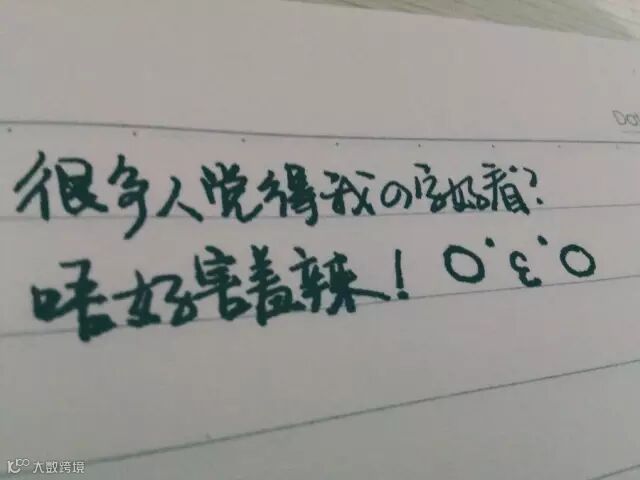 Do
很多人觉得我の字好看?
唔好害羞辣! O.ε.O
大数跨境